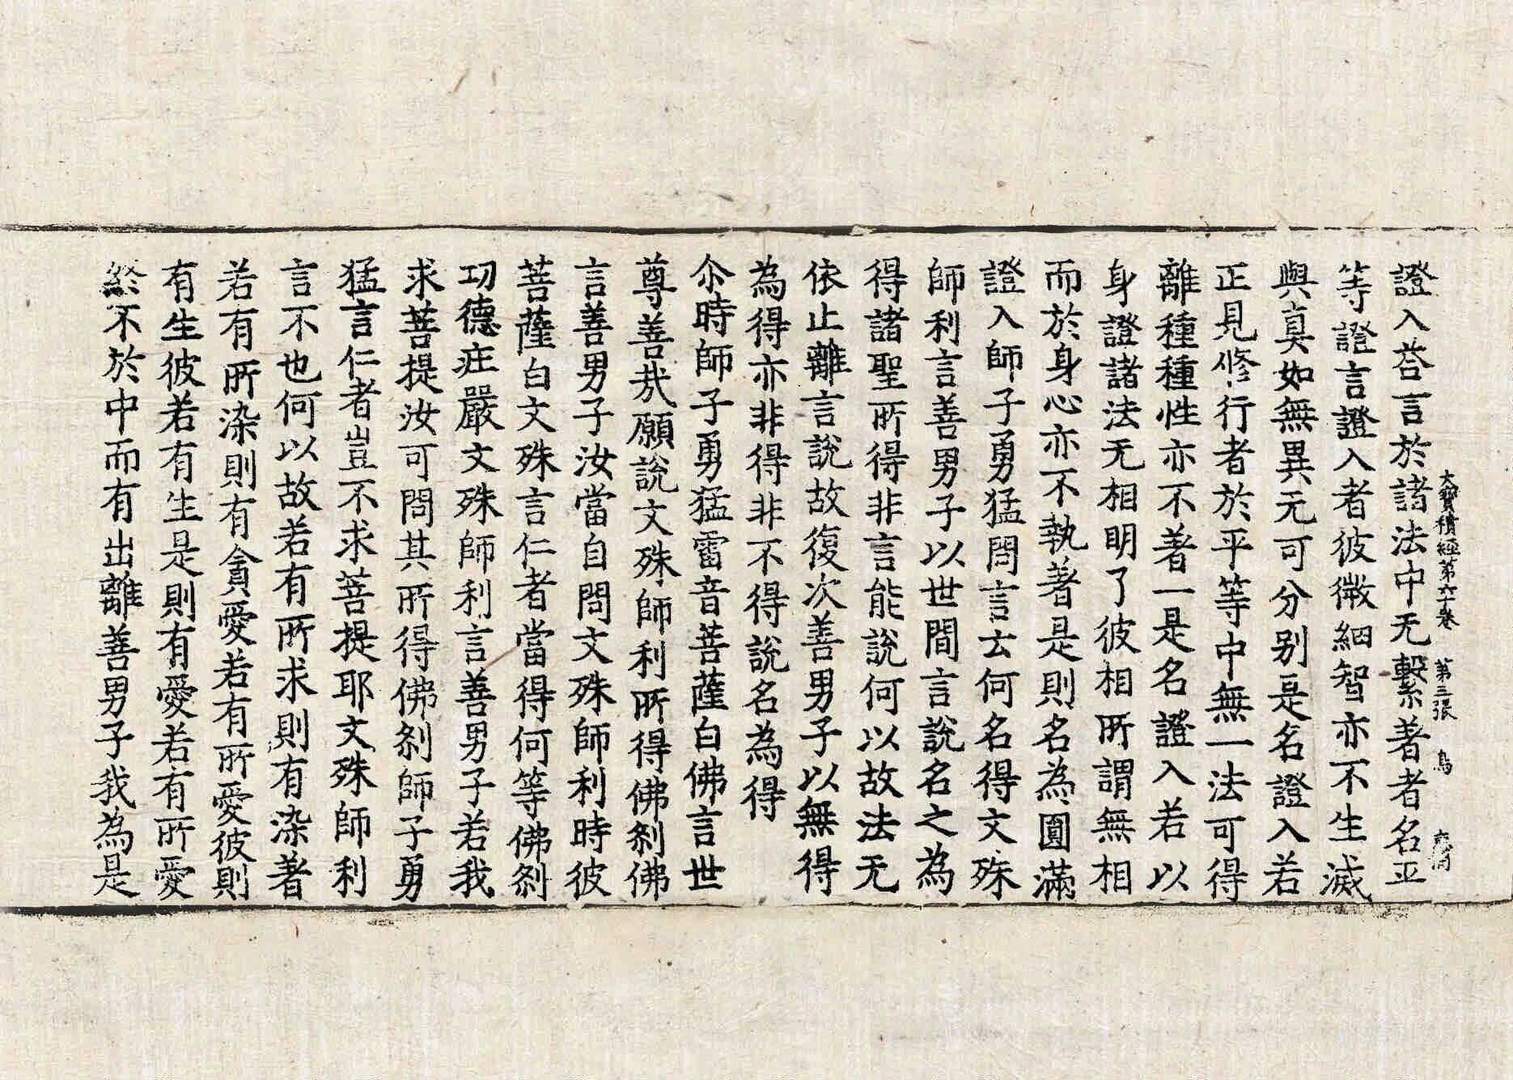 證入荅言於諸法中无繫著者名平
等證言證入者彼微細智亦不生滅
與真如無異无可分别是名證入若
正見修行者於平等中無一法可得
離種種性亦不著一是名證入若以
身證諸法无相明了彼相所謂無相
而於身心亦不執著是則名為圓滿
證入師子勇猛問言云何名得文殊
師利言善男子以世間言說名之為
得諸聖所得得非言能說何以故法无
依止離言說故復次善男子以無得
為得亦非得非不得說名為得
尒時師子勇猛雷音菩薩白佛言世
尊善哉願說文殊師利所得佛刹佛
言善男子汝當自問文殊師利時彼
菩薩白文殊言仁者當得何等佛刹
功德庄嚴文殊師利言善男子若我
求菩提汝可問其所得佛刹師子勇
猛言仁者豈不求菩提耶文殊師利
言不也何以故若有所求則有染著
若有所染則有貪愛若有所愛彼則
有生彼若有生是則有愛若有所愛
終不於中而有出離善男子我為是
大寶積經第六十卷 第三張 鳥